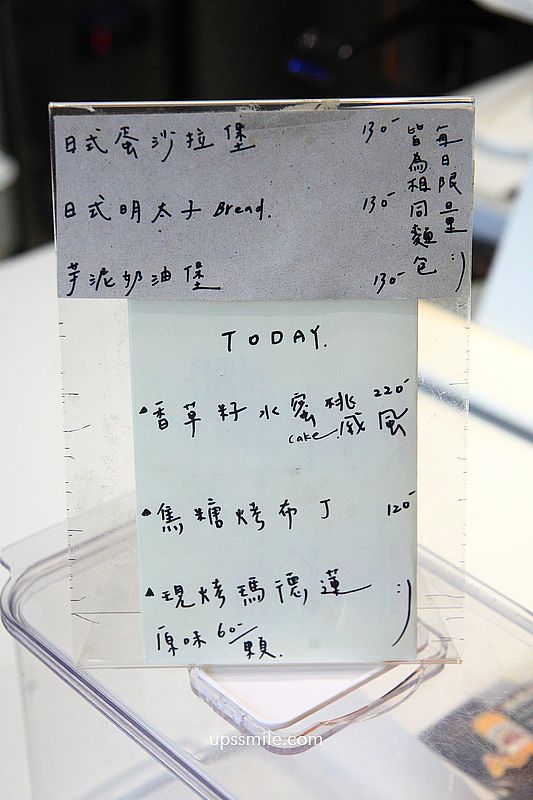 日式蛋沙拉堡 130-
日式明太子 Bread. 130-
芋泥奶油堡 130-
每日限量 :)
皆為相同麵包
TODAY.
▲香草籽水蜜桃 220-
cake. 戚風
▲焦糖烤布丁 120-
▲現烤瑪德蓮 :)
原味 60-/顆.
upssmile.com